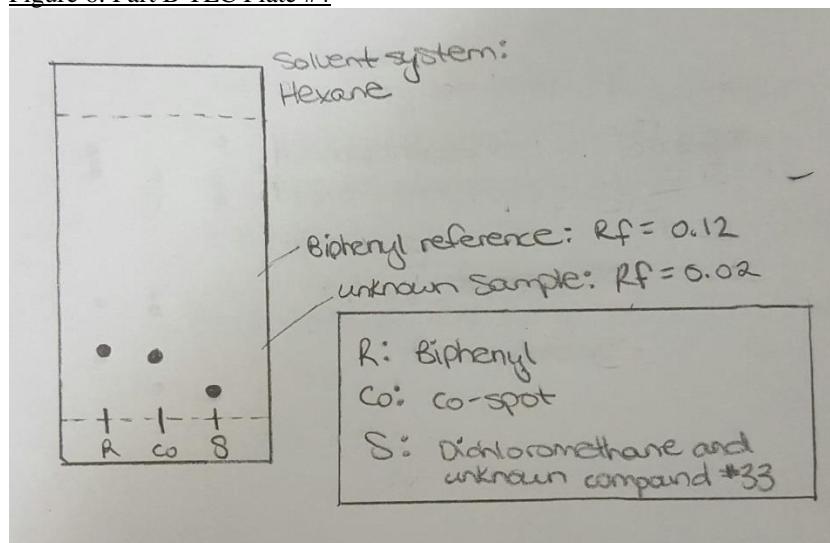 Solvent system:
Hexane
Biphenyl reference: Rf = 0.12
unknown sample: Rf = 0.02
R: Biphenyl
Co: co-spot
S: Dichloromethane and
unknown compound #33
R co S